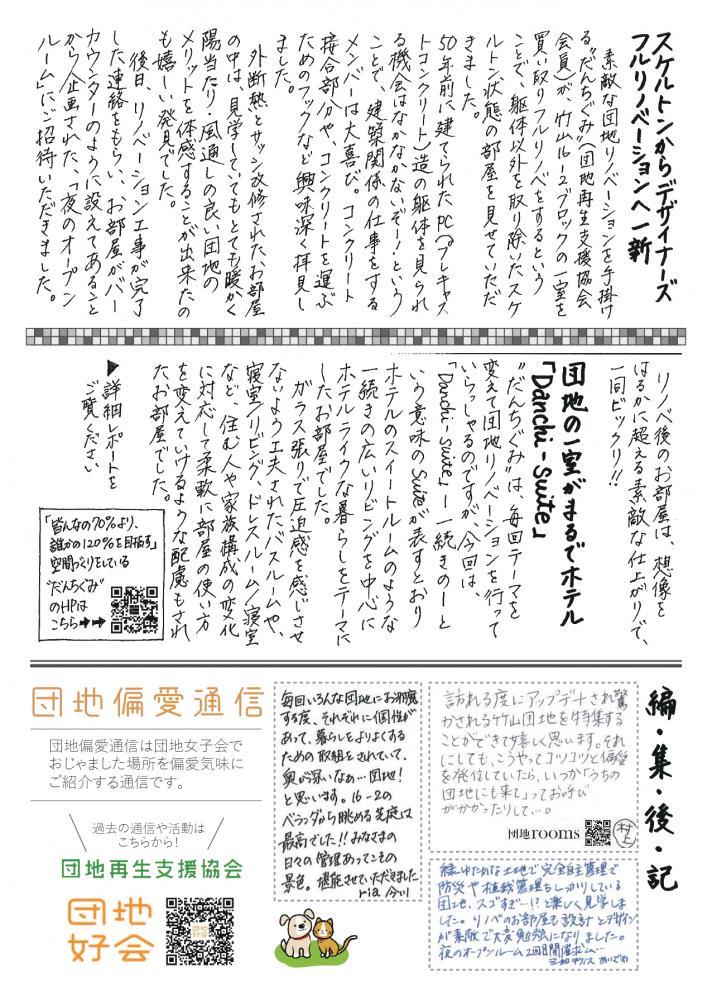 スケルトンからデザイナーズ
フルリノベーションへ一新
素敵な団地リノベーションを手掛け
る“だんちぐみ”（団地再生支援協会
会員）が、竹山16-2ブロックの一室を
買い取りフルリノベをするという
ことで、躯体以外を取り除いたスケ
ルトン状態の部屋を見せていただ
きました。
50年前に建てられたPC（プレキャス
トコンクリート）造の躯体を見られ
る機会はなかなかないぞ！という
ことで、建築関係の仕事をする
メンバーは大喜び。コンクリート
接合部分や、コンクリートを運ぶ
ためのフックなど興味深く拝見し
ました。
外断熱とサッシ改修されたお部屋
の中は、見学していてもとても暖かく
陽当たり・風通しの良い団地の
メリットを体感することが出来たの
も嬉しい発見でした。
後日、リノベーション工事が完了
した連絡をもらい、お部屋がバー
カウンターのように設えてあること
から企画された、「夜のオープン
ルーム」にご招待いただきました。
リノベ後のお部屋は、想像を
はるかに超える素敵な仕上がりで、
一同ビックリ!!
団地の一室がまるでホテル
「Danchi-Suite」
“だんちぐみ”は、毎回テーマを
変えて団地リノベーションを行って
いらっしゃるのですが、今回は
「Danchi-suite」－一続きの－と
いう意味のSuiteが表すとおり
ホテルのスイートルームのような
一続きの広いリビングを中心に
ホテルライクな暮らしをテーマに
したお部屋でした。
ガラス張りで圧迫感を感じさせ
ないよう工夫されたバスルームや、
寝室/リビング、ドレスルーム/寝室
など、住む人や家族構成の変化
に対応して柔軟に部屋の使い方
を変えていけるような配慮もされ
たお部屋でした。
▶詳細レポートを
ご覧ください
「皆んなの70%より、
誰かの120%を目指す」
空間づくりをしている
“だんちぐみ”
のHPは
こちら➡➡
編・集・後・記
訪れる度にアップデートされ驚
かされる竹山団地を特集する
ことができて嬉しく思います。それ
にしても、こうやってコツコツと偏愛
を発信していたら、いつか「うちの
団地にも来て」ってお呼び
がかかったりして…。
団地rooms
村上
緑ゆたかな土地で完全自主管理で
防災や植栽管理もしっかりしている
団地、スゴすぎ…!?と楽しく見学しま
した。リノベのお部屋も設計とデザイン
が素敵で大変勉強になりました。
夜のオープンルーム2回目開催求ム…
毎回いろんな団地にお邪魔
する度、それぞれに個性が
あって、暮らしをよりよくする
ための取組をされていて、
奥が深いなぁ…団地！
と思います。16-2の
ベランダから眺める芝庭は
最高でした!!みなさまの
日々の管理あってこその
景色。堪能させていただきました
ria 今川
団地偏愛通信
団地偏愛通信は団地女子会で
おじゃました場所を偏愛気味に
ご紹介する通信です。
過去の通信や活動は
こちらから！
団地再生支援協会
団地
好会